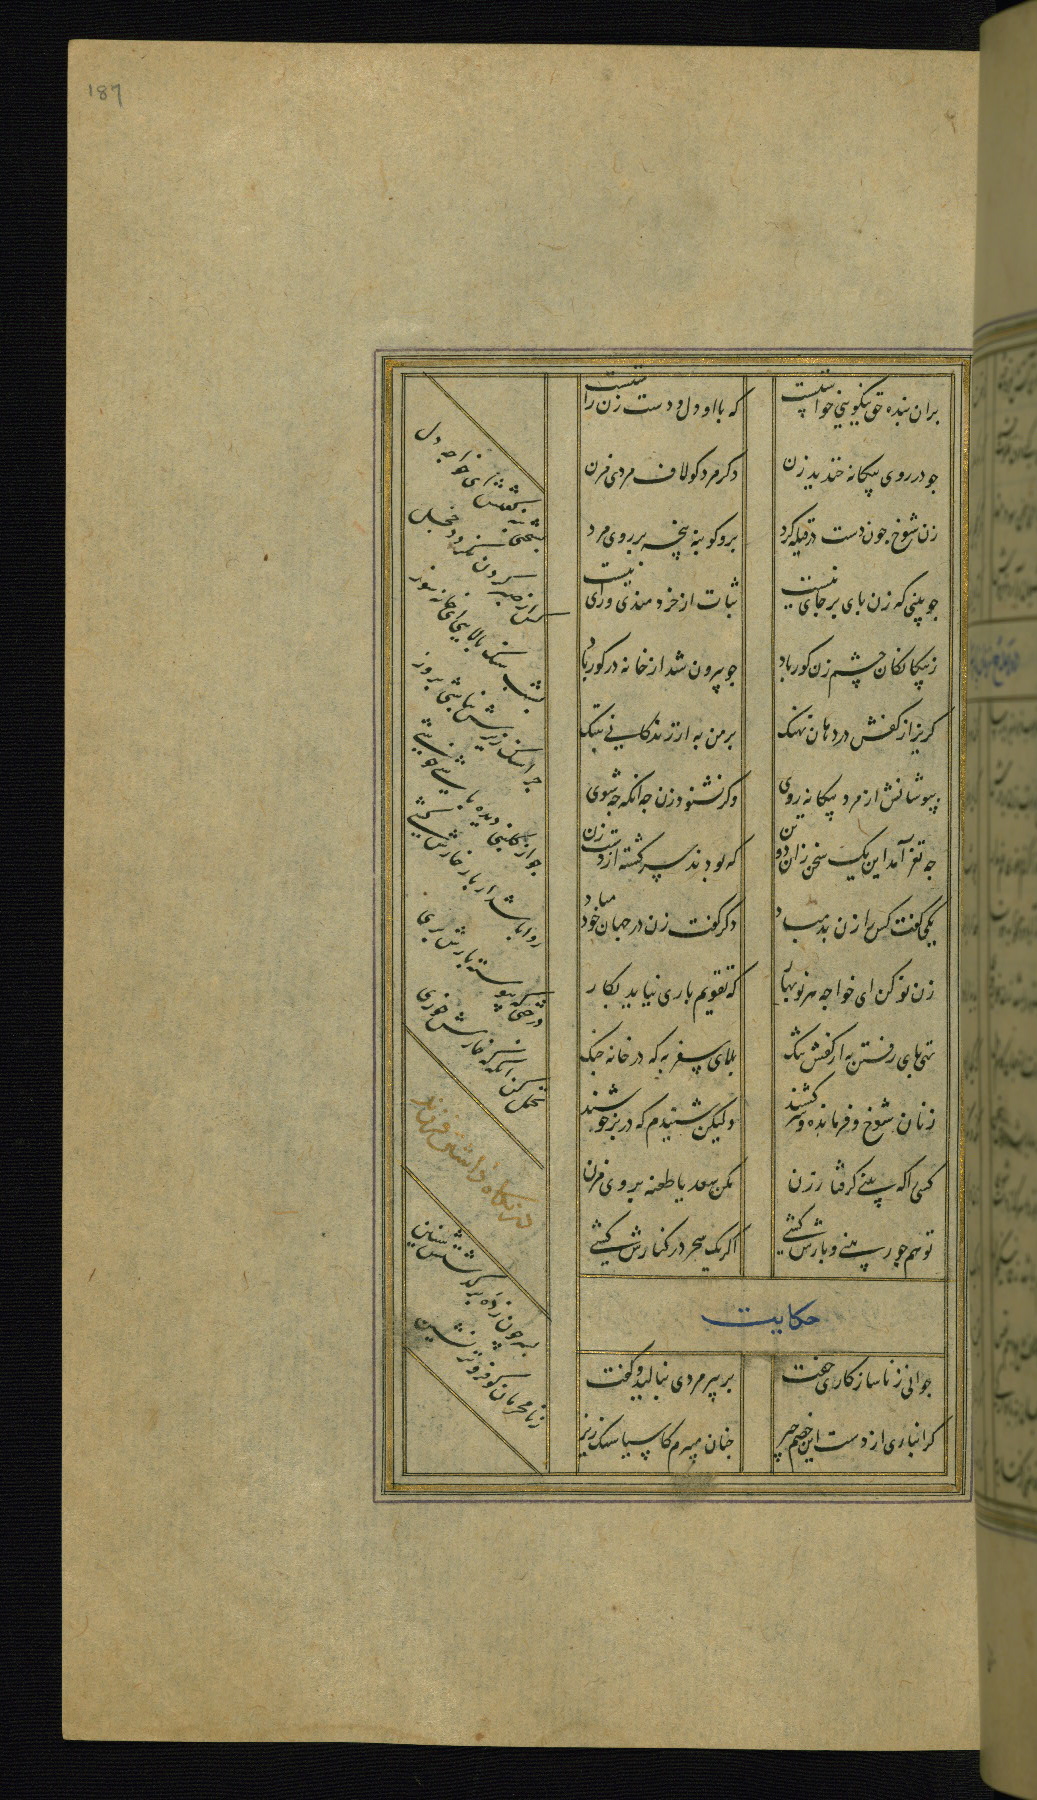 187
بران بنده حق نیکویی خواستست
که با او دل و دست زن راستست
جو در روی بیکانه خندید زن
دکر مرد کو لاف مردی مزن
زن شوخ جون دست در قلیه کرد
برو کو بنه پنجه بر روی مرد
جو بینی که زن پای بر جای نیست
ثبات از خردمندی و رای نیست
ز بیکانکان چشم زن کور باد
جو بیرون شد از خانه در کور باد
کریز از کفش در دهان نهنک
که مردن به از زندکانی بننک
بپوشانش از مرد بیکانه روی
وکر نشنود زن جه انکه جه شوی
جه نغز آمد این یک سخن زان دو تن
که بودند سرکشته از دست زن
یکی کفت کس را زن بد مباد
دکر کفت زن در جهان خود مباد
زن نو کن ای خواجه هر نوبهار
که تقویم پاری نیاید بکار
تهی پای رفتن به از کفش تنک
بلای سفر به که در خانه جنک
زنان شوخ و فرمانده و سرکشند
ولیکن شنیدم که در بر خوشند
کسی را که بینی کرفتار زن
مکن سعدیا طعنه بر وی مزن
تو هم جور بینی و بارش کشی
اکر یک سحر در کنارش کشی
حکایت
جوانی ز ناسازکاری جفت
بر پیرمردی بنالید و کفت
کرانباری از دست این خصم چیر
جنان میبرم کاسیا سنک زیر
بسختی بنه کفتش ای خواجه دل
کس از صبر کردن نکردد خجل
بشب سنک بالایی ای خانه سوز
جرا سنک زیرین نباشی بروز
جو از کلبنی دیده باشی خوشی
روا باشد ار بار خارش کشی
درختی که پیوسته بارش بری
تحمل کن انکه که خارش خوری
در نکاه داشتن فرزند
پسر چون ز ده بر کذشتش سنین
ز نامحرمان کو فروتر نشین